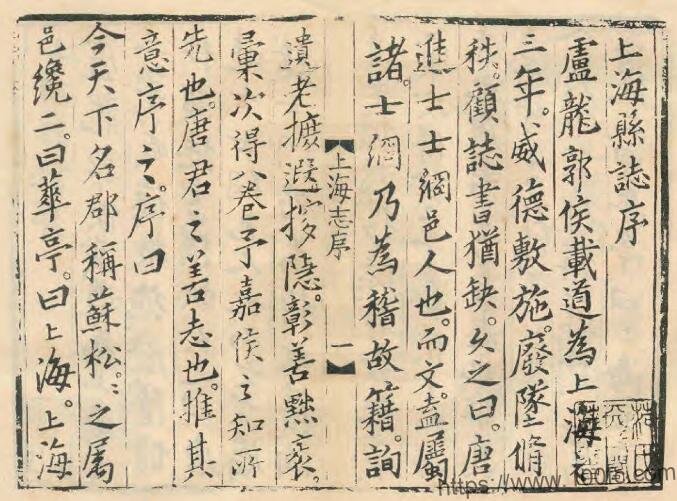 上海縣誌序
盧龍郭侯載道為上海
三年。威德敷施。廢墜脩
秩。顧誌書猶缺。久之曰。唐
進士士綱邑人也。而文。盍屬
諸。士綱乃為稽故籍。詢
上海志序
一
遺老摭遐搜隱。彰善黜衺。
彙次得八卷予嘉侯之知所
先也。唐君之善志也。推其
意序之。序曰
今天下名郡稱蘇松。〻之属
邑纔二。曰華亭。曰上海。上海
https://www.100875.com